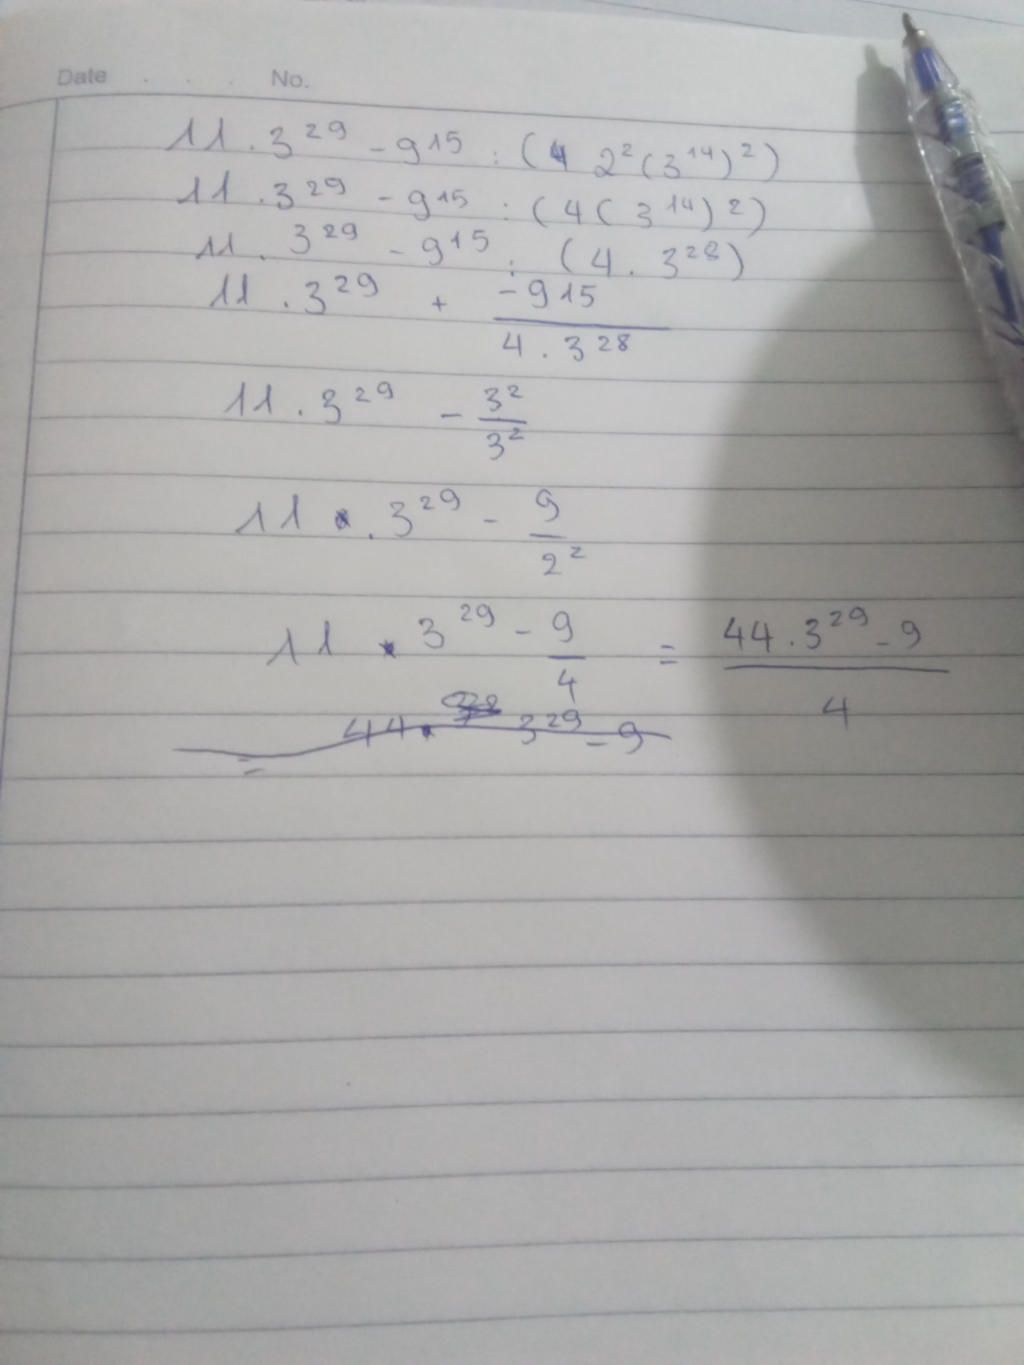 Date . . . No.
11 . 3²⁹ - 9¹⁵ : (4 2² (3¹⁴)²)
11 . 3²⁹ - 9¹⁵ : (4 (3¹⁴)²)
11 . 3²⁹ - 9¹⁵ : (4 . 3²⁸)
11 . 3²⁹ + -9¹⁵ / 4 . 3²⁸
11 . 3²⁹ - 3² / 3²
11 . 3²⁹ - 9 / 2²
11 . 3²⁹ - 9 / 4 = 44 . 3²⁹ - 9 / 4
= 44 . 3²⁹ - 9